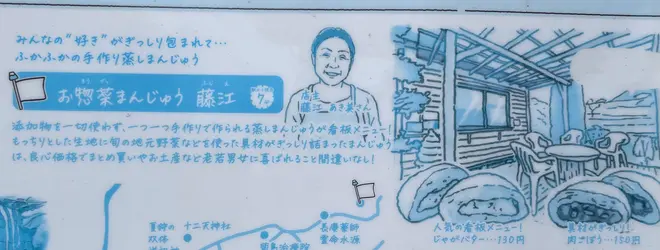 みんなの“好き”がぎっしり包まれて…
ふかふかの手作り蒸しまんじゅう
お惣菜まんじゅう 藤江
店主
藤江 あき子さん
添加物を一切使わず、一つ一つ手作りで作られる蒸しまんじゅうが看板メニュー!
もっちりとした生地に旬の地元野菜などを使った具材がぎっしり詰まったまんじゅう
は、良心価格でまとめ買いやお土産など老若男女に喜ばれること間違いなし!
人気の看板メニュー!
じゃがバター…130円
具材がぎっしり!
肉ごぼう…150円
十二天神社
長慶薬師
霊命水源